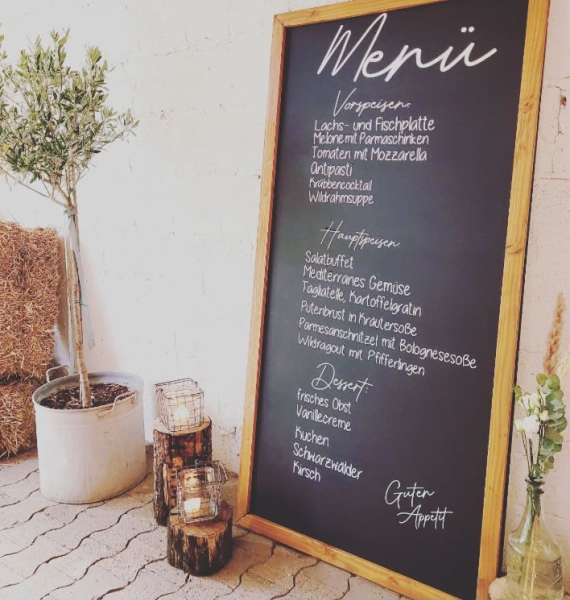 Menü
Vorspeisen:
Lachs- und Fischplatte
Melone mit Parmaschinken
Tomaten mit Mozzarella
Antipasti
Krabbencocktail
Wildrahmsuppe
Hauptspeisen:
Salatbuffet
Mediterraines Gemüse
Tagliatelle, Kartoffelgratin
Putenbrust in Kräutersoße
Parmesanschnitzel mit Bolognesesoße
Wildragout mit Pfifferlingen
Dessert:
frisches Obst
Vanillecreme
Kuchen
Schwarzwälder
Kirsch
Guten
Appetit